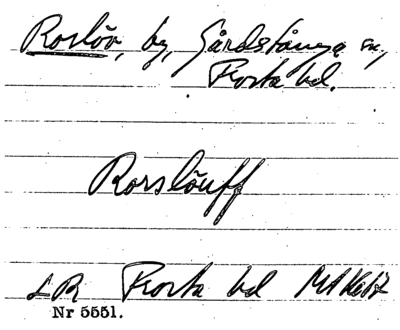 Roslöv, by, Gårdstånga sn,
Frosta hd.
Rorslöuff
LR Frosta hd
Nr 5551.